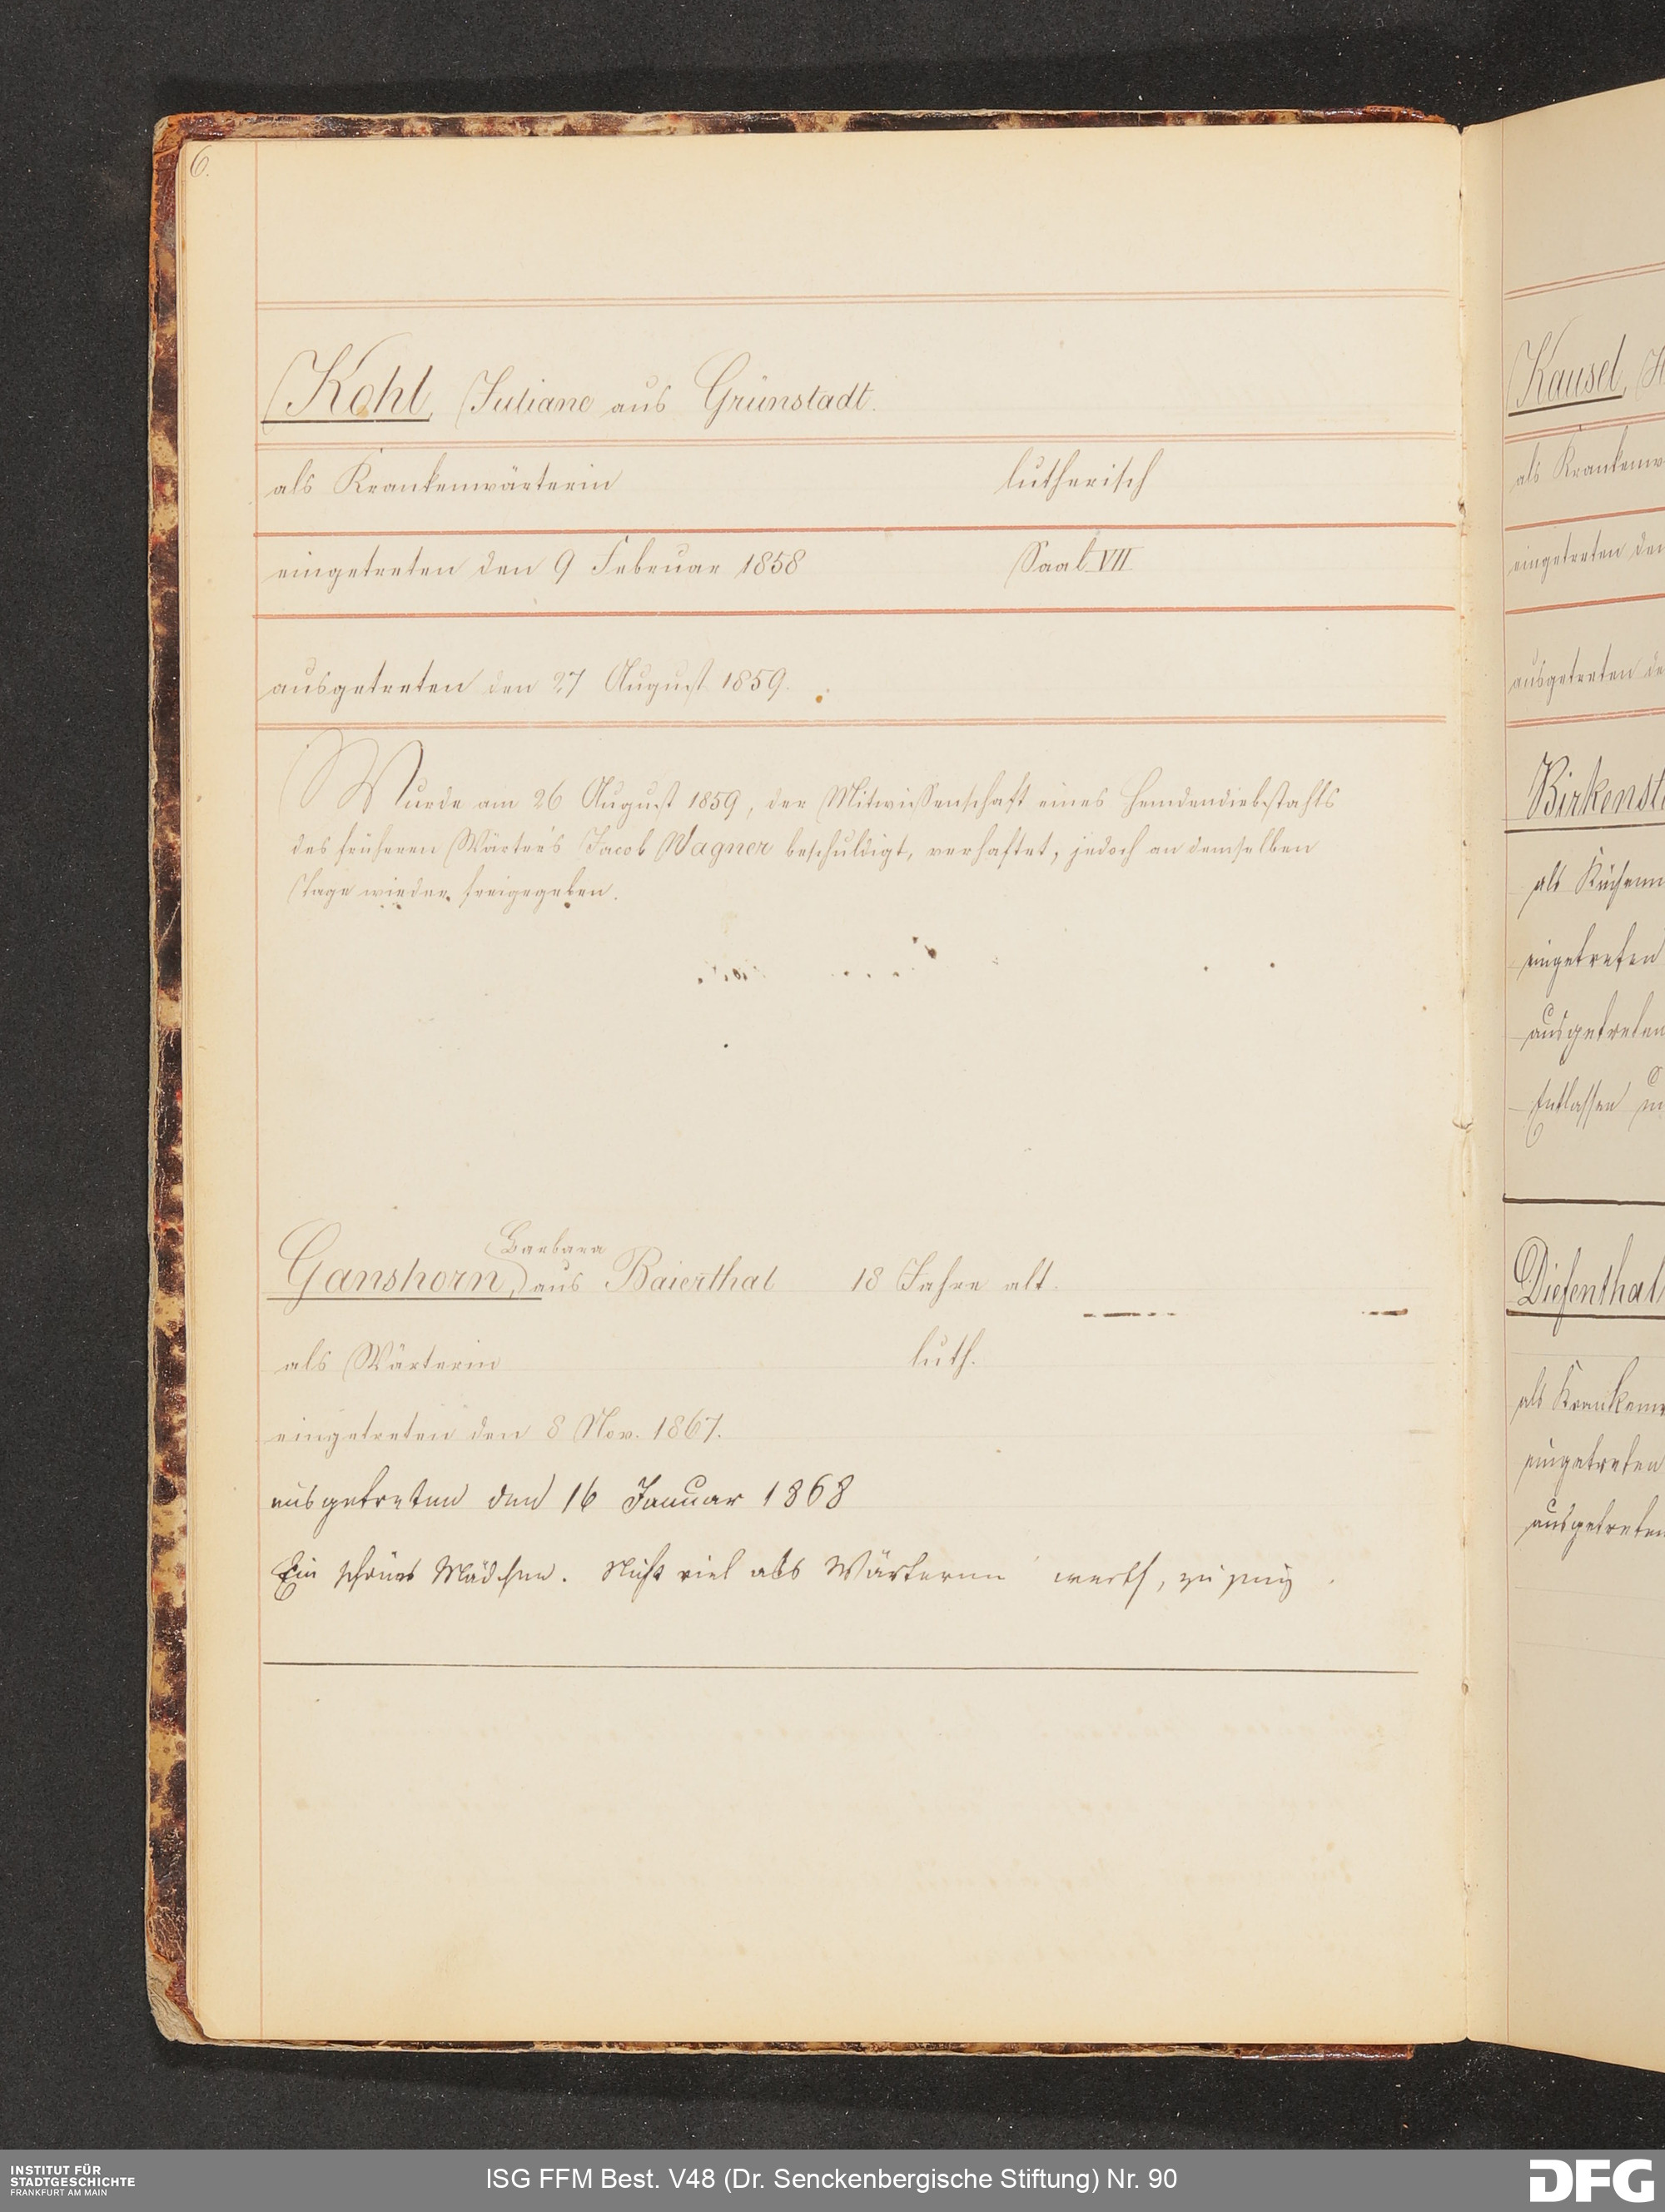 6.
Kohl, Juliane aus Grünstadt.
als Krankenwärterin lutherisch
eingetreten den 9 Februar 1858 Saal VII
ausgetreten den 27 August 1859.
Wurde am 26 August 1859, der Mitwissenschaft eines Hemdendiebstahls
des früheren Wärters Jacob Wagner beschuldigt, verhaftet, jedoch an demselben
Tage wieder freigegeben.
Barbara
Ganshorn, aus Baierthal 18 Jahre alt.
als Wärterin luth.
eingetreten den 8 Nov. 1867.
ausgetreten den 16 Januar 1868
Ein schönes Mädchen. Nicht viel als Wärterinn werth, zu jung.
Kausel, H
als Krankenw
eingetreten den
ausgetreten de
Birkensto
als Küchenm
eingetreten
ausgetreten
Entlassen
Diefenthal
als Krankenw
eingetreten
ausgetreten
INSTITUT FÜR
STADTGESCHICHTE
FRANKFURT AM MAIN
ISG FFM Best. V48 (Dr. Senckenbergische Stiftung) Nr. 90
DFG